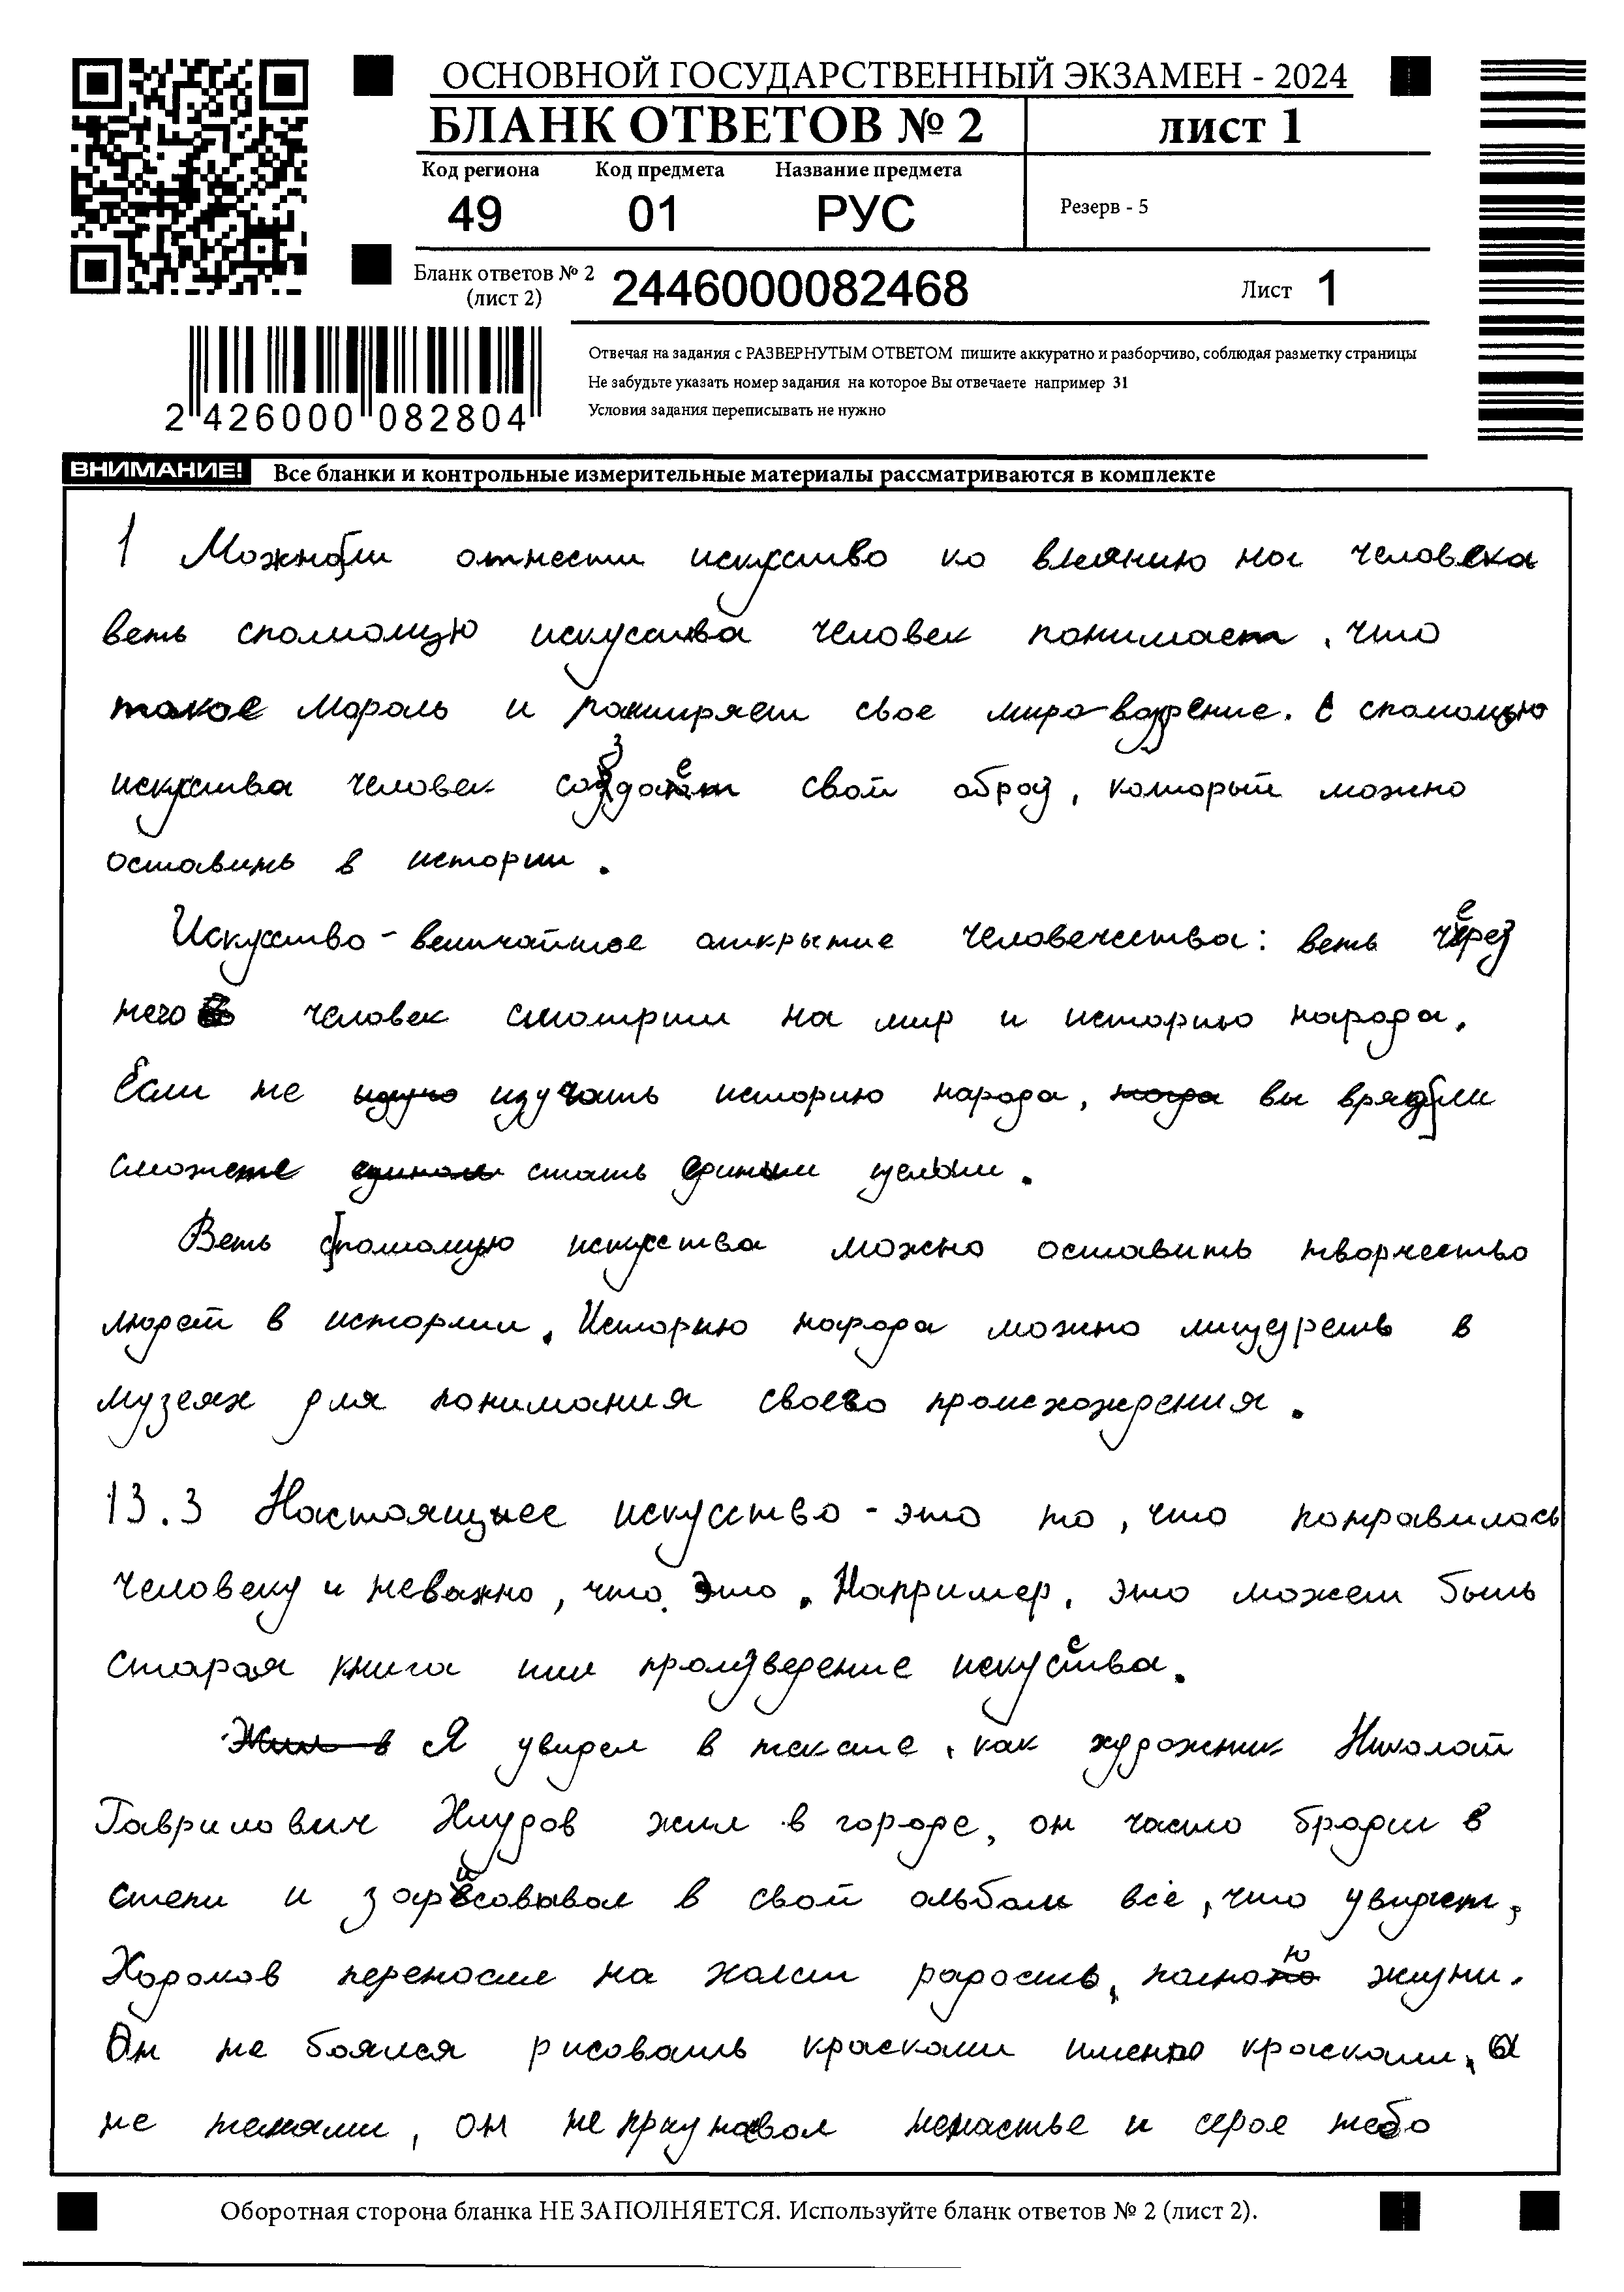 ОСНОВНОЙ ГОСУДАРСТВЕННЫЙ ЭКЗАМЕН - 2024
БЛАНК ОТВЕТОВ № 2 ЛИСТ 1
Код региона Код предмета Название предмета
49 01 РУС
Резерв - 5
Бланк ответов № 2 (лист 2) 2446000082468 Лист 1
Отвечая на задания с РАЗВЕРНУТЫМ ОТВЕТОМ пишите аккуратно и разборчиво, соблюдая разметку страницы
Не забудьте указать номер задания на которое Вы отвечаете например 31
Условия задания переписывать не нужно
2 426000 082804
ВНИМАНИЕ! Все бланки и контрольные измерительные материалы рассматриваются в комплекте
1 Можно ли отнести искусство ко влиянию на человека
веть спомощю искуства человек понимает, что
такое мораль и разширяет свое мира-воззрение. С спомощью
искуства человек создаёт свой образ, который можно
оставить в истории.
Искусство - величайшое открытие человечества: веть через
него человек смотрит на мир и историю народа.
Если не изучать историю народа, вы вряд ли
сможете стать единым целым.
Веть с помощую искуства можно оставить творчество
людей в истории. Историю народа можно лицезреть в
музеях для понимания своего происхождения.
13.3 Настоящиее искусство - это то, что понравилось
человеку и неважно, что это. Например, это может быть
старая книга или произведение искусства.
Я увидел в тексте, как художник Николай
Гаврилович Хлудов жил в городе, он часто бродил в
степи и зарисовывал в свой альбом всё, что увидит,
переносил на холст радость, жизни.
Он не боялся рисовать красками именно красками, а
не тенями, он не признавал ненастье и серое небо
Оборотная сторона бланка НЕ ЗАПОЛНЯЕТСЯ. Используйте бланк ответов № 2 (лист 2).